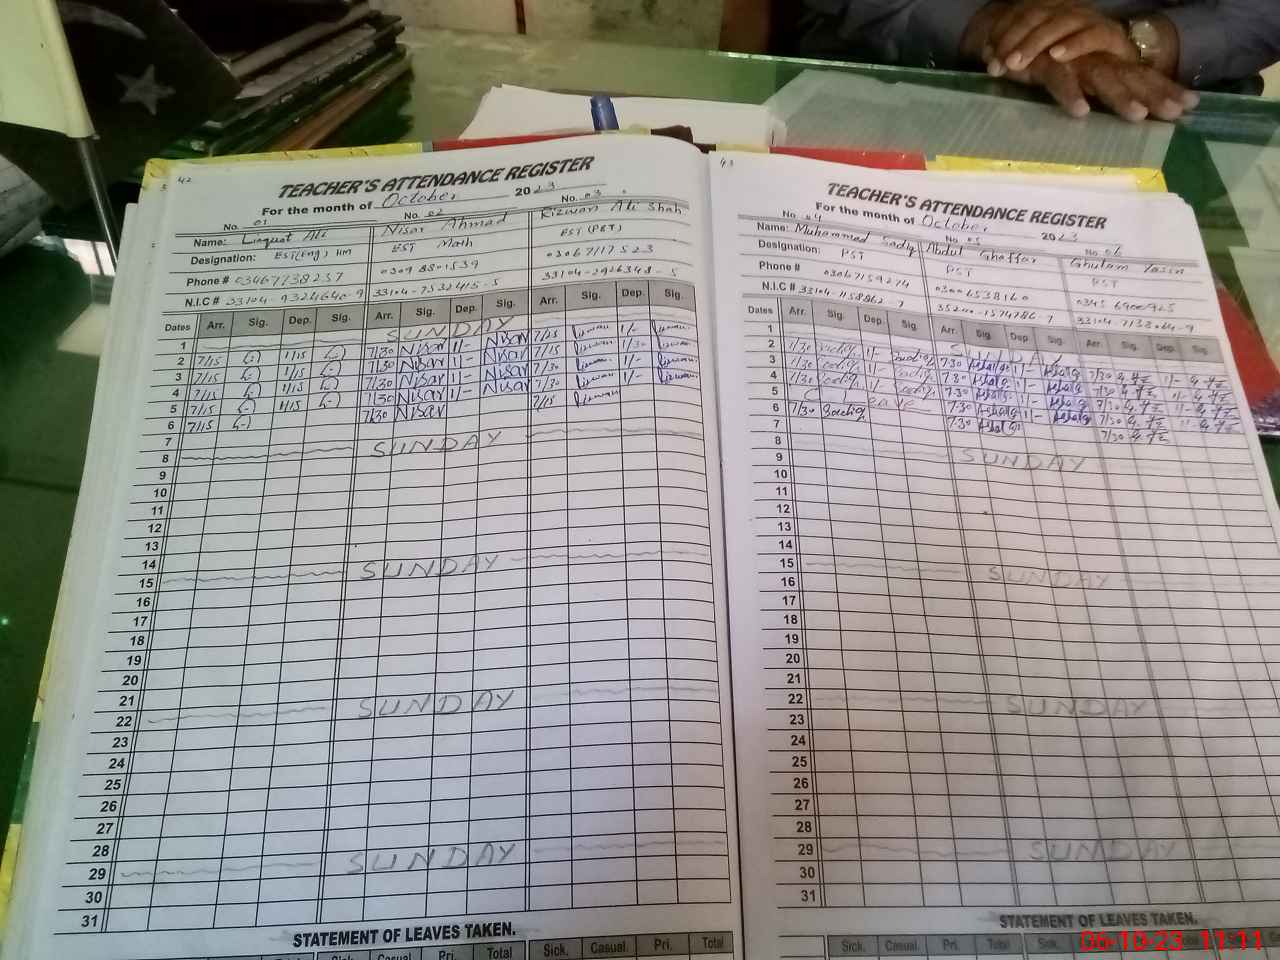 42
TEACHER'S ATTENDANCE REGISTER
For the month of October 2023
No. 01 No. 02 No. 03
Name: Liaquat Ali Nisar Ahmad Rizwan Ali Shah
Designation: EST(Eng) HM EST Math EST (PET)
Phone # 03467738237 0309 8801539 03067117523
N.I.C # 33104-9324640-9 33104-7532415-5 33104-2926348-5
Dates Arr. Sig. Dep. Sig. Arr. Sig. Dep. Sig. Arr. Sig. Dep. Sig.
1 SUNDAY
2 7/15 1/15 7/30 Nisar 1/- Nisar 7/15 1/-
3 7/15 1/15 7/30 Nisar 1/- Nisar 7/15 1/30
4 7/15 1/15 7/30 Nisar 1/- Nisar 7/30 1/-
5 7/15 1/15 7/30 Nisar 1/- Nisar
6 7/15 7/30 Nisar 7/15
7
8 SUNDAY
9
10
11
12
13
14
15 SUNDAY
16
17
18
19
20
21
22 SUNDAY
23
24
25
26
27
28
29 SUNDAY
30
31
STATEMENT OF LEAVES TAKEN.
Sick. Casual Pri. Total Sick. Casual. Pri. Total
43
TEACHER'S ATTENDANCE REGISTER
For the month of October 2023
No. 04 No. 05 No. 06
Name: Muhammad Sadiq Abdul Ghaffar Ghulam Yasin
Designation: PST PST PST
Phone # 03067159274 03006538160 0345 6900925
N.I.C # 33104-1158862-7 35200-1574786-7 33104-7138064-9
Dates Arr. Sig. Dep. Sig. Arr. Sig. Dep. Sig. Arr. Sig. Dep. Sig.
1 SUNDAY
2 7/30 1/- 7.30 1/- 7/30 1/-
3 7/30 1/- 7.30 1/- 7/30 1/-
4 7/30 1/- 7.30 1/- 7/30 1/-
5 C Leave 7.30 1/- 7/30 1/-
6 7/30 Sadiq 7.30 7/30
7
8 SUNDAY
9
10
11
12
13
14
15 SUNDAY
16
17
18
19
20
21
22 SUNDAY
23
24
25
26
27
28
29 SUNDAY
30
31
STATEMENT OF LEAVES TAKEN.
Sick. Casual. Pri. Total Sick.
06-10-23 11:11